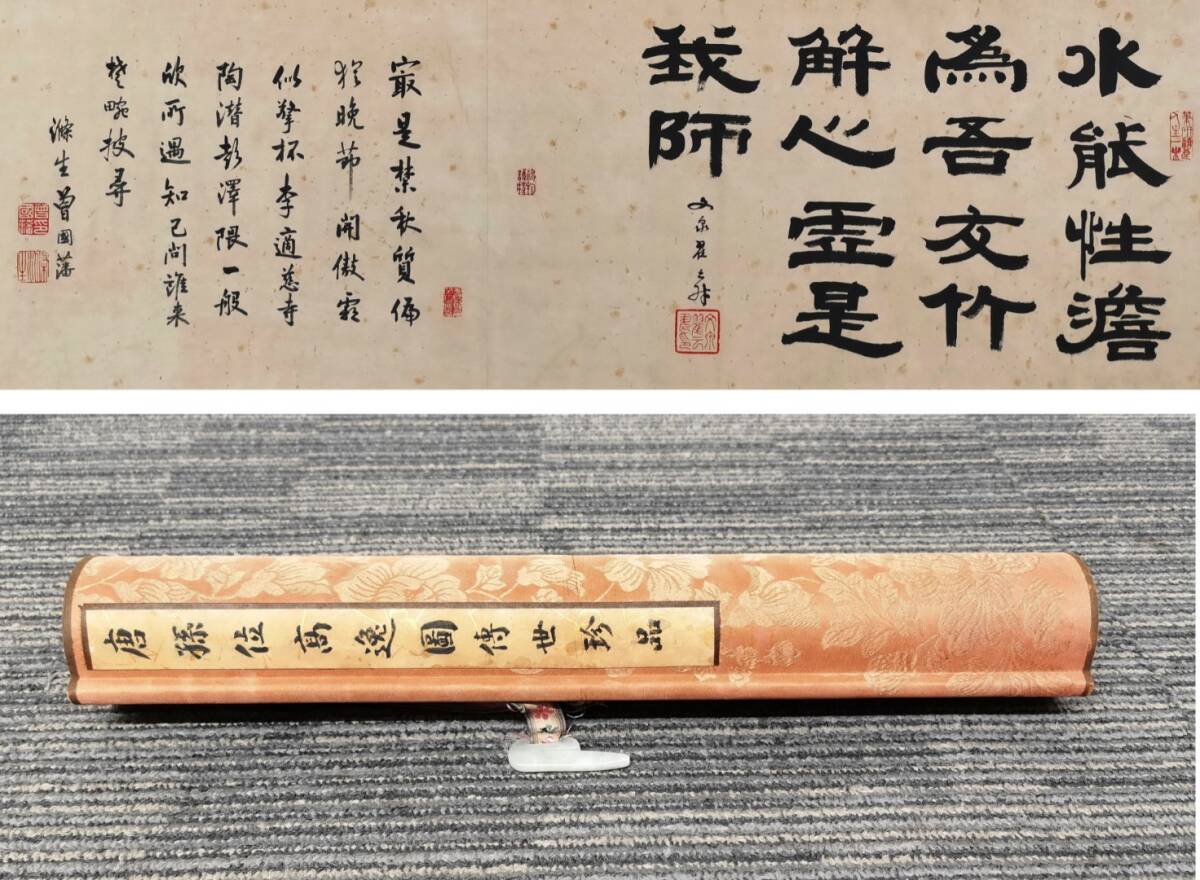 水能性澹
為吾友竹
解心虛是
我師
文泉翟云升
最是禁秋質偏
於晚節開傲霜
似擎杯李適慈寺
陶潛彭澤隈一般
欣所遇知己問誰来
楚畹披尋
滌生曾國藩
唐孫位高逸圖傳世珍品